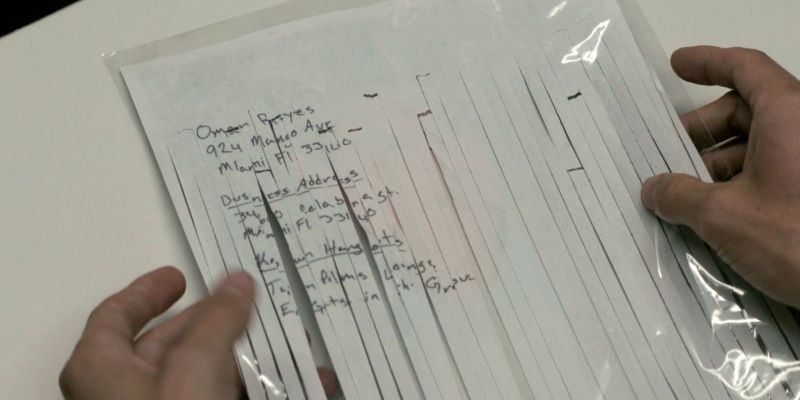 Omar Reyes
924 Mango Ave
Miami Fl 33140
Business Address
Miami Fl 33140
Known Hangouts
Twin Palms Lounge
in the Grove